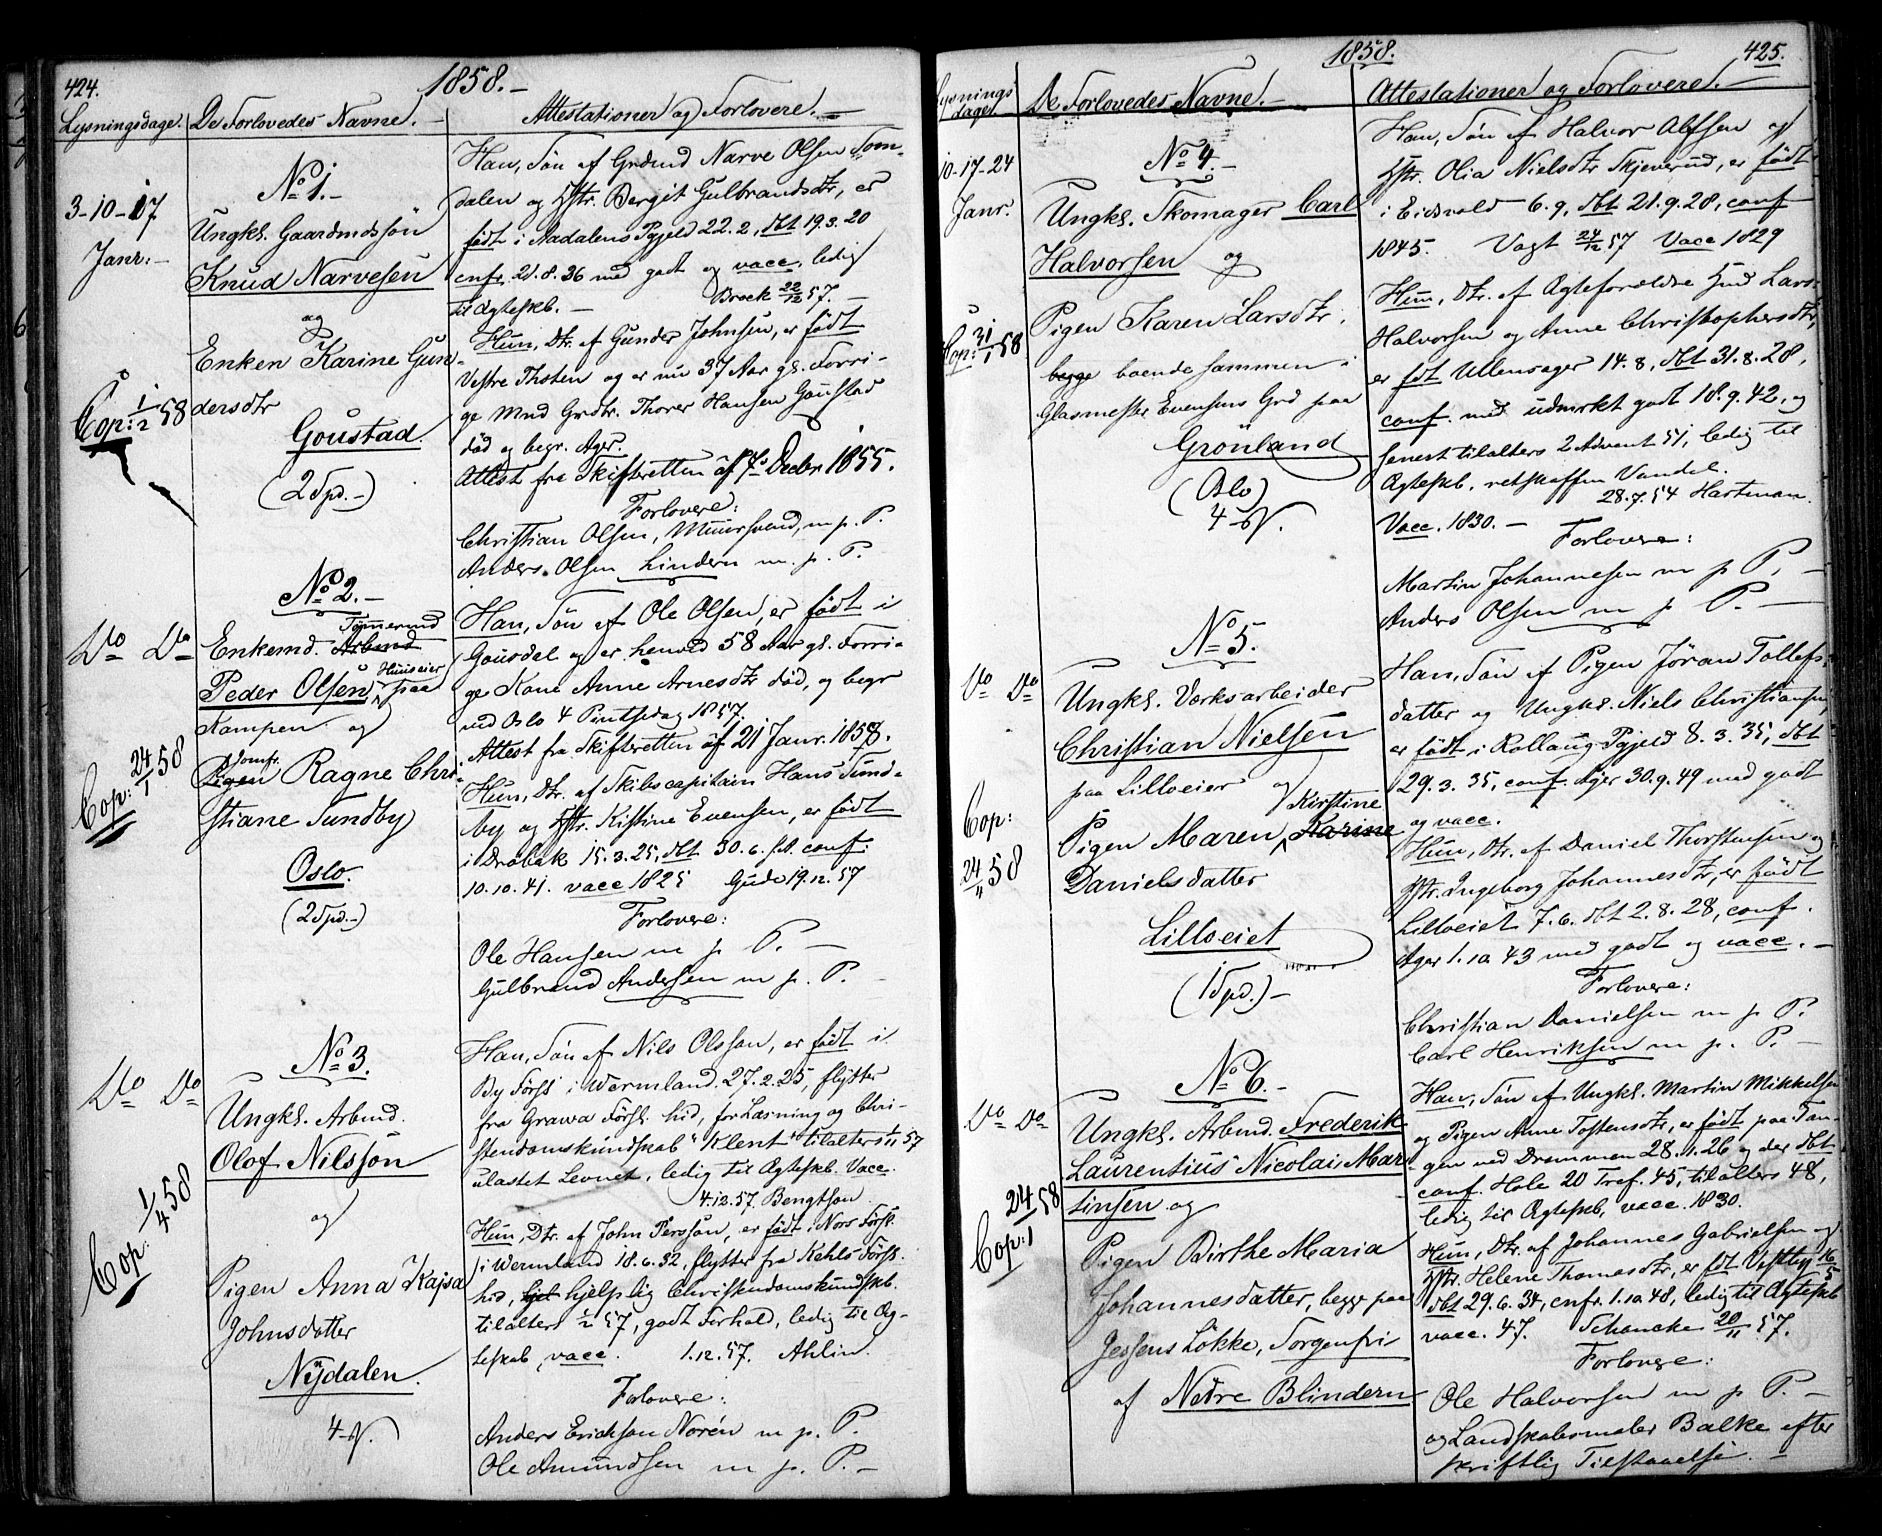 424.
1858.-
Lysningsdage.
De Forlovedes Navne.-
Attestationer og Forlovere.-
3-10-17
Janr:-
No 1.-
Ungkl. Gaardmdssön
Knud Narvesen
og
Enken Karine Gun-
dersdtr
Goustad.
(2 Spd.-)
Cop: 1/2 58
Han, Søn af Grdmd Narve Olsen Som-
dalen og Hstr. Berget Gulbrandsdtr, er
født i Aadalens Pgjeld 22.2, dbt 19.3.20
cnf. 21.8.36 med godt og vacc. ledig
til Ægteskb.- Brock 22/12 57.-
Hun, Dtr. af Gunder Johnsen, er født
Vestre Thoten og er nu 37 Aar gl. Forri-
ge Mnd Grdtr. Thorer Hansen Goustad
død og begr. Ager.
Attest fra Skifteretten af 7 Decbr 1855.
Forlovere:
Christian Olsen, Muursvend, m. p. P.
Anders Olsen Lindern m. p. P.
No 2.-
Do Do
Tømmermd
Enkemd. Arbmd
Peder Olsen, Huuseier paa
Kampen og
Jomfr.
Pigen Ragne Chri-
stiane Sundby
Oslo.
(2 Spd.-)
Cop: 24/1 58
Han, Søn af Ole Olsen, er født i
Gousdal og er henved 58 Aar gl. Forri-
ge Kone Anne Arnesdtr død, og begr
ved Oslo 4 Pintsedag 1857.
Attest fra Skifteretten af 21 Janr. 1858.
Hun, Dtr. af Skibscapitain Hans Sund-
by og Hstr. Kistine Evensen, er født
i Drøbak 15.3.25, dbt 30.6. s.A. conf.
10.10.41. vacc 1825 Gude 19.12.57
Forlovere:
Ole Hansen m p. P.-
Gulbrand Andersen m p. P.-
No 3.
Do Do
Ungkl. Arbmd.
Olof Nilsson
og
Pigen Anna Kajsa
Johnsdatter
Nydalen.
Cop: 1/4 58
Han, Søn af Nils Olsson, er født i
By Förs: i Wermland. 27.2.25, flytter
fra Grawa Förs: hid, for Læsning og Chri-
stendomskundskab "Klent" tilalters 1/11 57
ulastet Levnet, ledig til Ægteskb. Vacc.
4.12.57 Bengtson
Hun, Dtr. af John Persson, er født i Nors Förs:
i Wermland 18.6.32, flytter fra Kehls Förs:
hid, hjelplig Christendomskundskb.
tilalters 1/2 57, godt Forhold, ledig til Æg-
teskab, vacc. 1.12.57. Ahlin.
Forlovere:
Anders Erickson Norén m. p. P.
Ole Amundsen m p. P.-
1858.
425.
Lysnings
dage.
De Forlovedes Navne.-
Attestationer og Forlovere.-
10-17-24
Janr.
No 4.-
Ungkl. Skomager Carl
Halvorsen og
Pigen Karen Larsdtr,
begge boende sammen i
Glasmester Evensens Grd paa
Grönland
(Oslo)
Cop: 31/1 58
Han, Søn af Halvor Alfsen og
Hstr. Olia Nielsdtr Skjeverud, er født
i Eidsvold 6.9, dbt 21.9.28, conf
1845. Vogt 24/12 57 Vacc 1829
Hun, Dtr. af Ægteforældre Hmd Lars
Halvorsen og Anne Christophersdtr,
er fdt Ullensager 14.8, dbt 31.8.28,
conf. med udmrkt godt 18.9.42, og
senest tilalters 2 Advent 51, ledig til
Ægteskb, retskaffen Vandel.
28.7.54 Hartman.
Vacc. 1830.-
Forlovere:
Martin Johannesen m p P.-
Anders Olsen m p. P.-
No 5.
Do Do
Ungkl. Værksarbeider
Christian Nielsen
paa Lilloeier og
Kirstine
Pigen Maren Karine
Danielsdatter
Lilloeiet
(1 Spd.)-
Cop:
24/4 58
Han, Søn af Pigen Jöran Tollefs-
datter og Ungkl. Niels Christiansen,
er født i Rollaug Pgjeld 8.3.35, dbt
29.3.35, conf. Ager 30.9.49 med godt
og vacc.
Hun, Dtr. af Daniel Thorstensen og
Hstr. Ingeborg Johannesdtr, er født
Lilloeiet 7.6. dbt 2.8.28, conf.
Ager 1.10.43 med godt og vacc.-
Forlovere:
Christian Danielsen m p P.
Carl Henriksen m p. P.-
No 6.-
Do Do
Ungkl. Arbmd. Frederik
Laurentius Nicolai Mar-
tinsen og
Pigen Birthe Maria
Johannesdatter, begge paa
Jessens Løkke, Sorgenfri
af Nedre Blindern
24/1 58
Cop:
Han, Søn af Ungkl. Martin Mikkelsen
og Pigen Anne Tostensdtr, er født paa Tan-
gen ved Drammen 28.1.26 og der dbt
conf. Hole 20 Tref. 45, tilalters 48,
ledig til Ægteskb, vacc. 1830.
Hun, Dtr. af Johannes Gabrielsen og
Hstr. Helene Thomasdtr, er fdt Vestby 16/5
dbt 29.6.34, cnfr. 1.10.48, ledig til Ægteskb
vacc. 47. Schancke 20/11 57.
Forlovere:
Ole Halvorsen m p P.-
og Landskabsmaler Balke efter
skriftlig Tilstaaelse.-